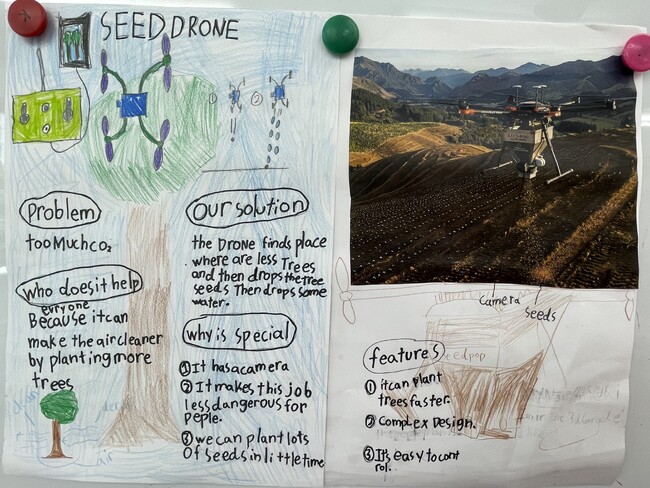 SEED DRONE
① ②
Problem
too Much co₂
who does it help
everyone
Because it can
make the air cleaner
by planting more
trees
air
our solution
the DRone finds place
where are less Trees
and then drops the tree
seeds Then drops some
water.
why is special
① It has a camera
② It makes this job
less dangerous for
peple.
③ we can plant lots
of seeds in little time
camera
seeds
seedpop
features
① it can plant
trees faster.
② complex Design.
③ It's easy to cont
rol.